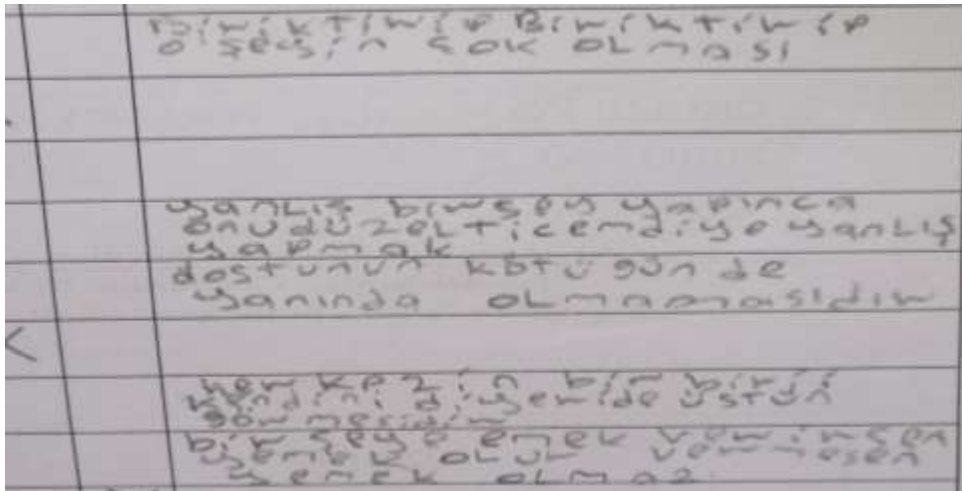 Biriktirip Biriktirip
o şeyin çok olması
yanlış birşey yapınca
onu düzelticem diye yanlış
yapmak
dostunun kötü gün de
yanında olmamasıdır
herkezin birbirini
kendini diyeride üstün
görmesidir
bir şeye emek verirsen
yemek olur vermesen
yemek olmaz